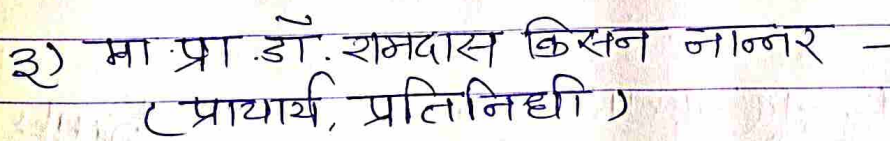 ३) मा.प्रा.डॉ. रामदास किसन नान्नर -
(प्राचार्य, प्रतिनिधी)